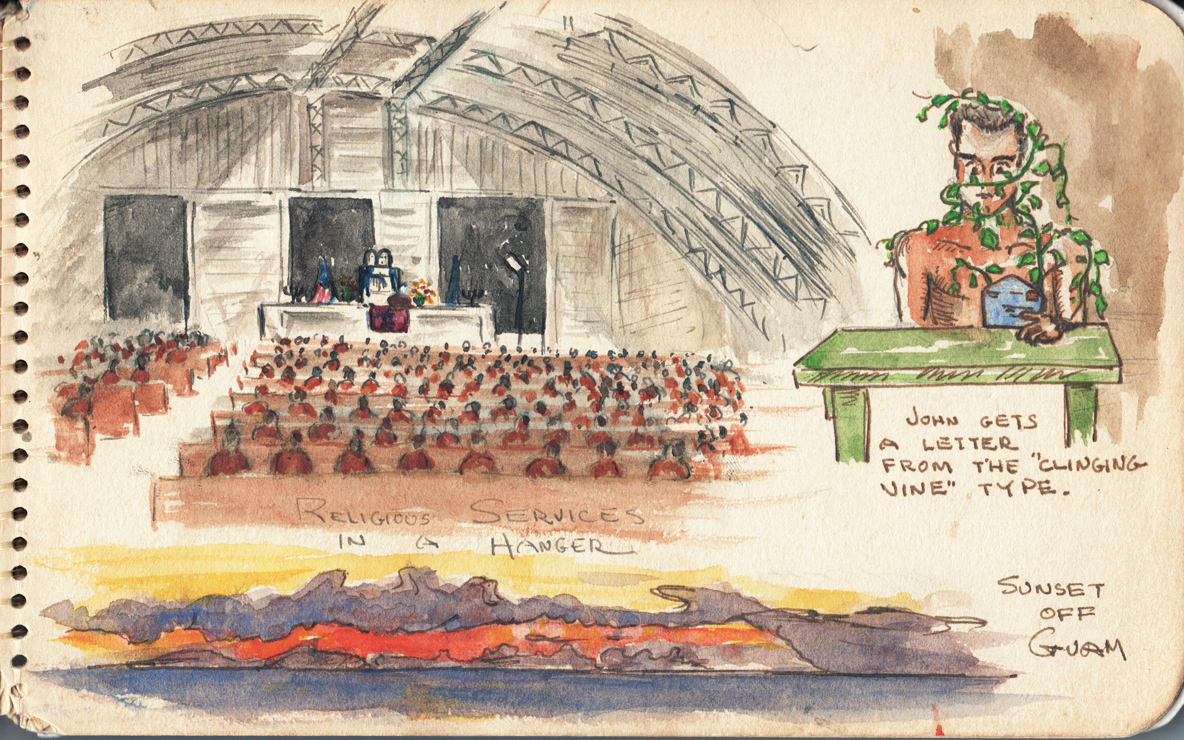 RELIGIOUS SERVICES
IN A HANGER
JOHN GETS
A LETTER
FROM THE "CLINGING
VINE" TYPE.
SUNSET
OFF
GUAM